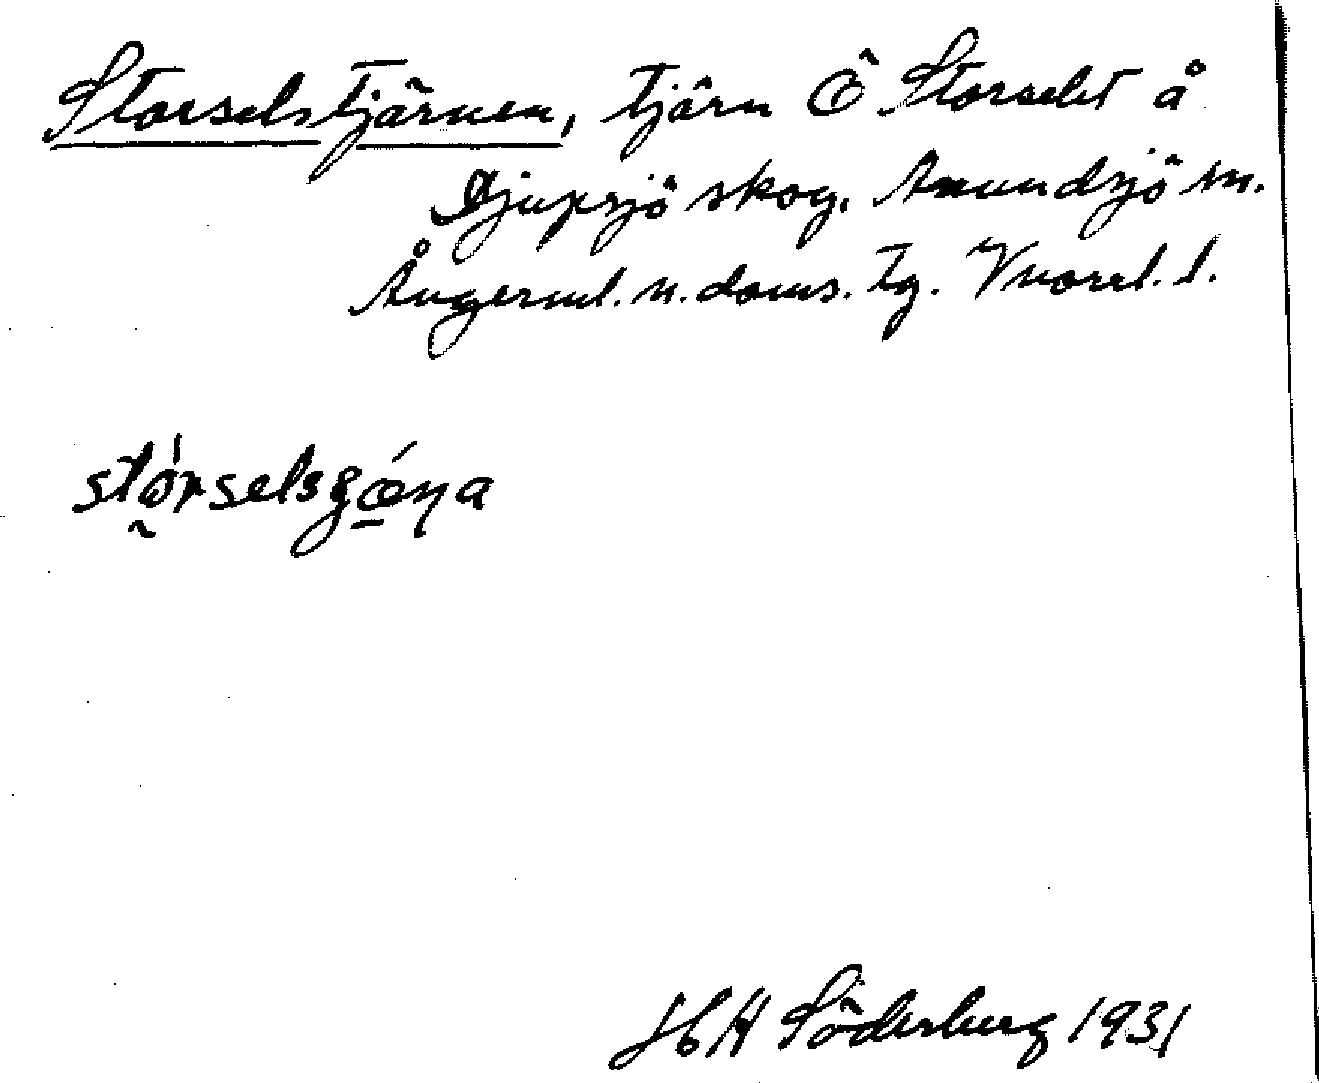 Storselstjärnen, tjärn Ö Storselet å
Djupsjö skog. Anundsjö sn.
Ångerml. n. doms. tg. Västerbl. l.
stǫ́rselsʒœ́ṇa
H H Söderberg 1931